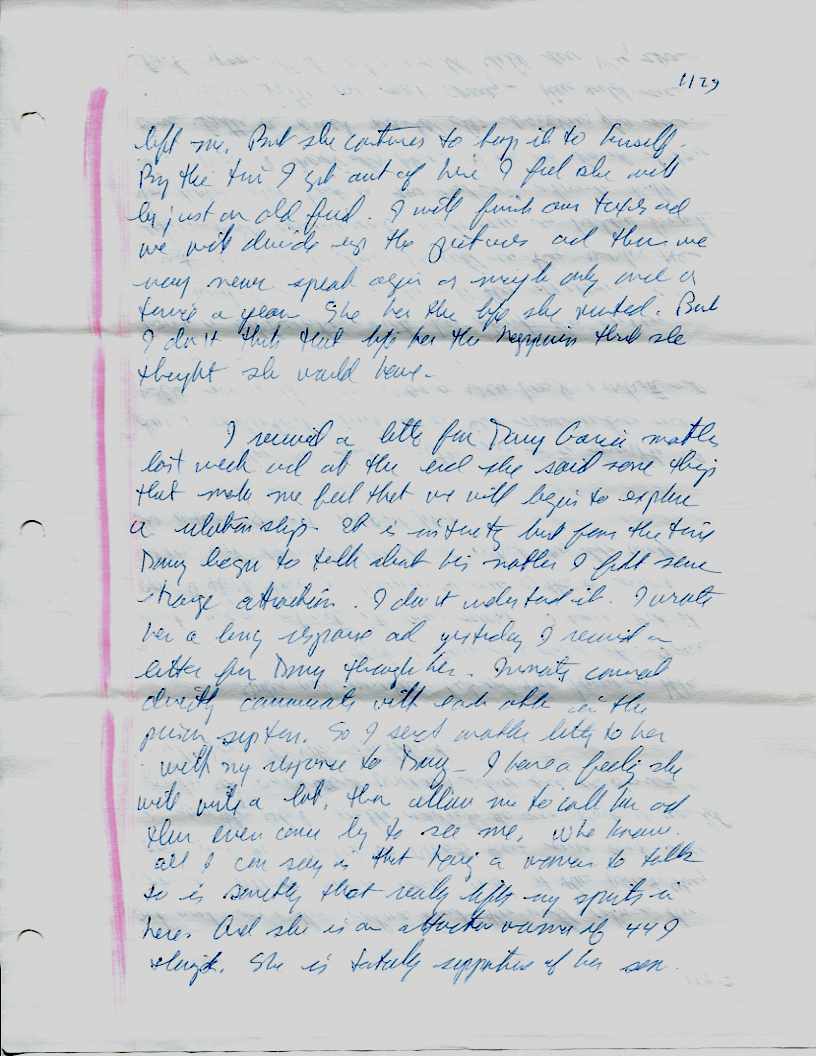 1129
left me. But she continues to keep it to herself.
By the time I get out of here I feel she will
be just an old friend. I will finish our taxes and
we will divide up the pictures and then we
may never speak again or maybe only once or
twice a year. She has the life she wanted. But
I don't think that life has the happiness that she
thought she would have.
I received a letter from Danny Garcia mother
last week and at the end she said some things
that make me feel that we will begin to explore
a relationship. It is but from the time
Danny began to talk about his mother I felt some
strange attraction. I don't understand it. I wrote
her a long response and yesterday I received a
letter from Danny through her. Inmates cannot
directly communicate with each other in the
prison system. So I sent another letter to her
with my response to Danny. I have a feeling she
will write a lot, then allow me to call her and
then even come by to see me, who knows.
all I can say is that having a woman to talk
to is something that really lifts my spirits in
here. And she is an attractive woman if
She is totally supportive of her son.